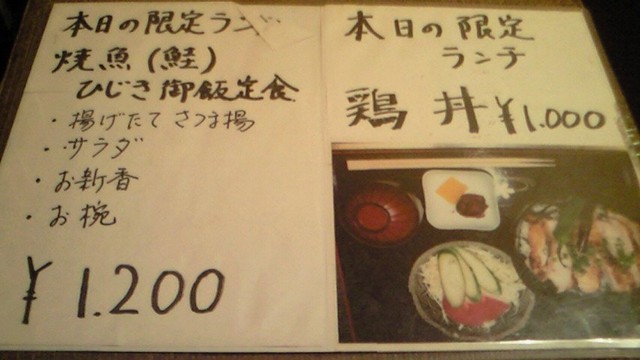 本日の限定ラン
焼魚(鮭)
ひじき御飯定食
・揚げたてさつま揚
・サラダ
・お新香
・お椀
¥1.200
本日の限定
ランチ
鶏丼¥1.000